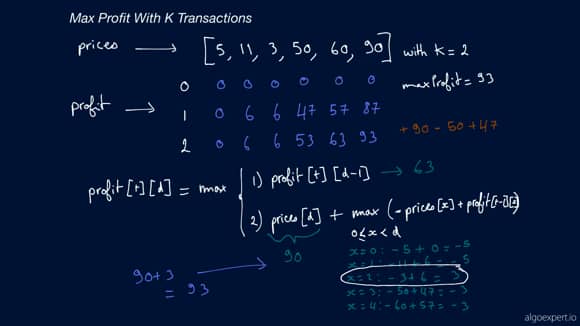 Max Profit With K Transactions
prices → [5, 11, 3, 50, 60, 90] with K = 2
0 0 0 0 0 0 0 maxProfit = 93
profit → 1 0 6 6 47 57 87
2 0 6 6 53 63 93 +90 - 50 + 47
profit[t][d] = max { 1) profit[t][d-1] → 63
2) prices[d] + max (-prices[x] + profit[t-1][x])
0 ≤ x < d
90
x=0: -5 + 0 = -5
x=1: -11+6 = -5
90+3 → x=2: -3+6 = 3
= 93 x=3: -50+47 = -3
x=4: -60+57 = -3
algoexpert.io